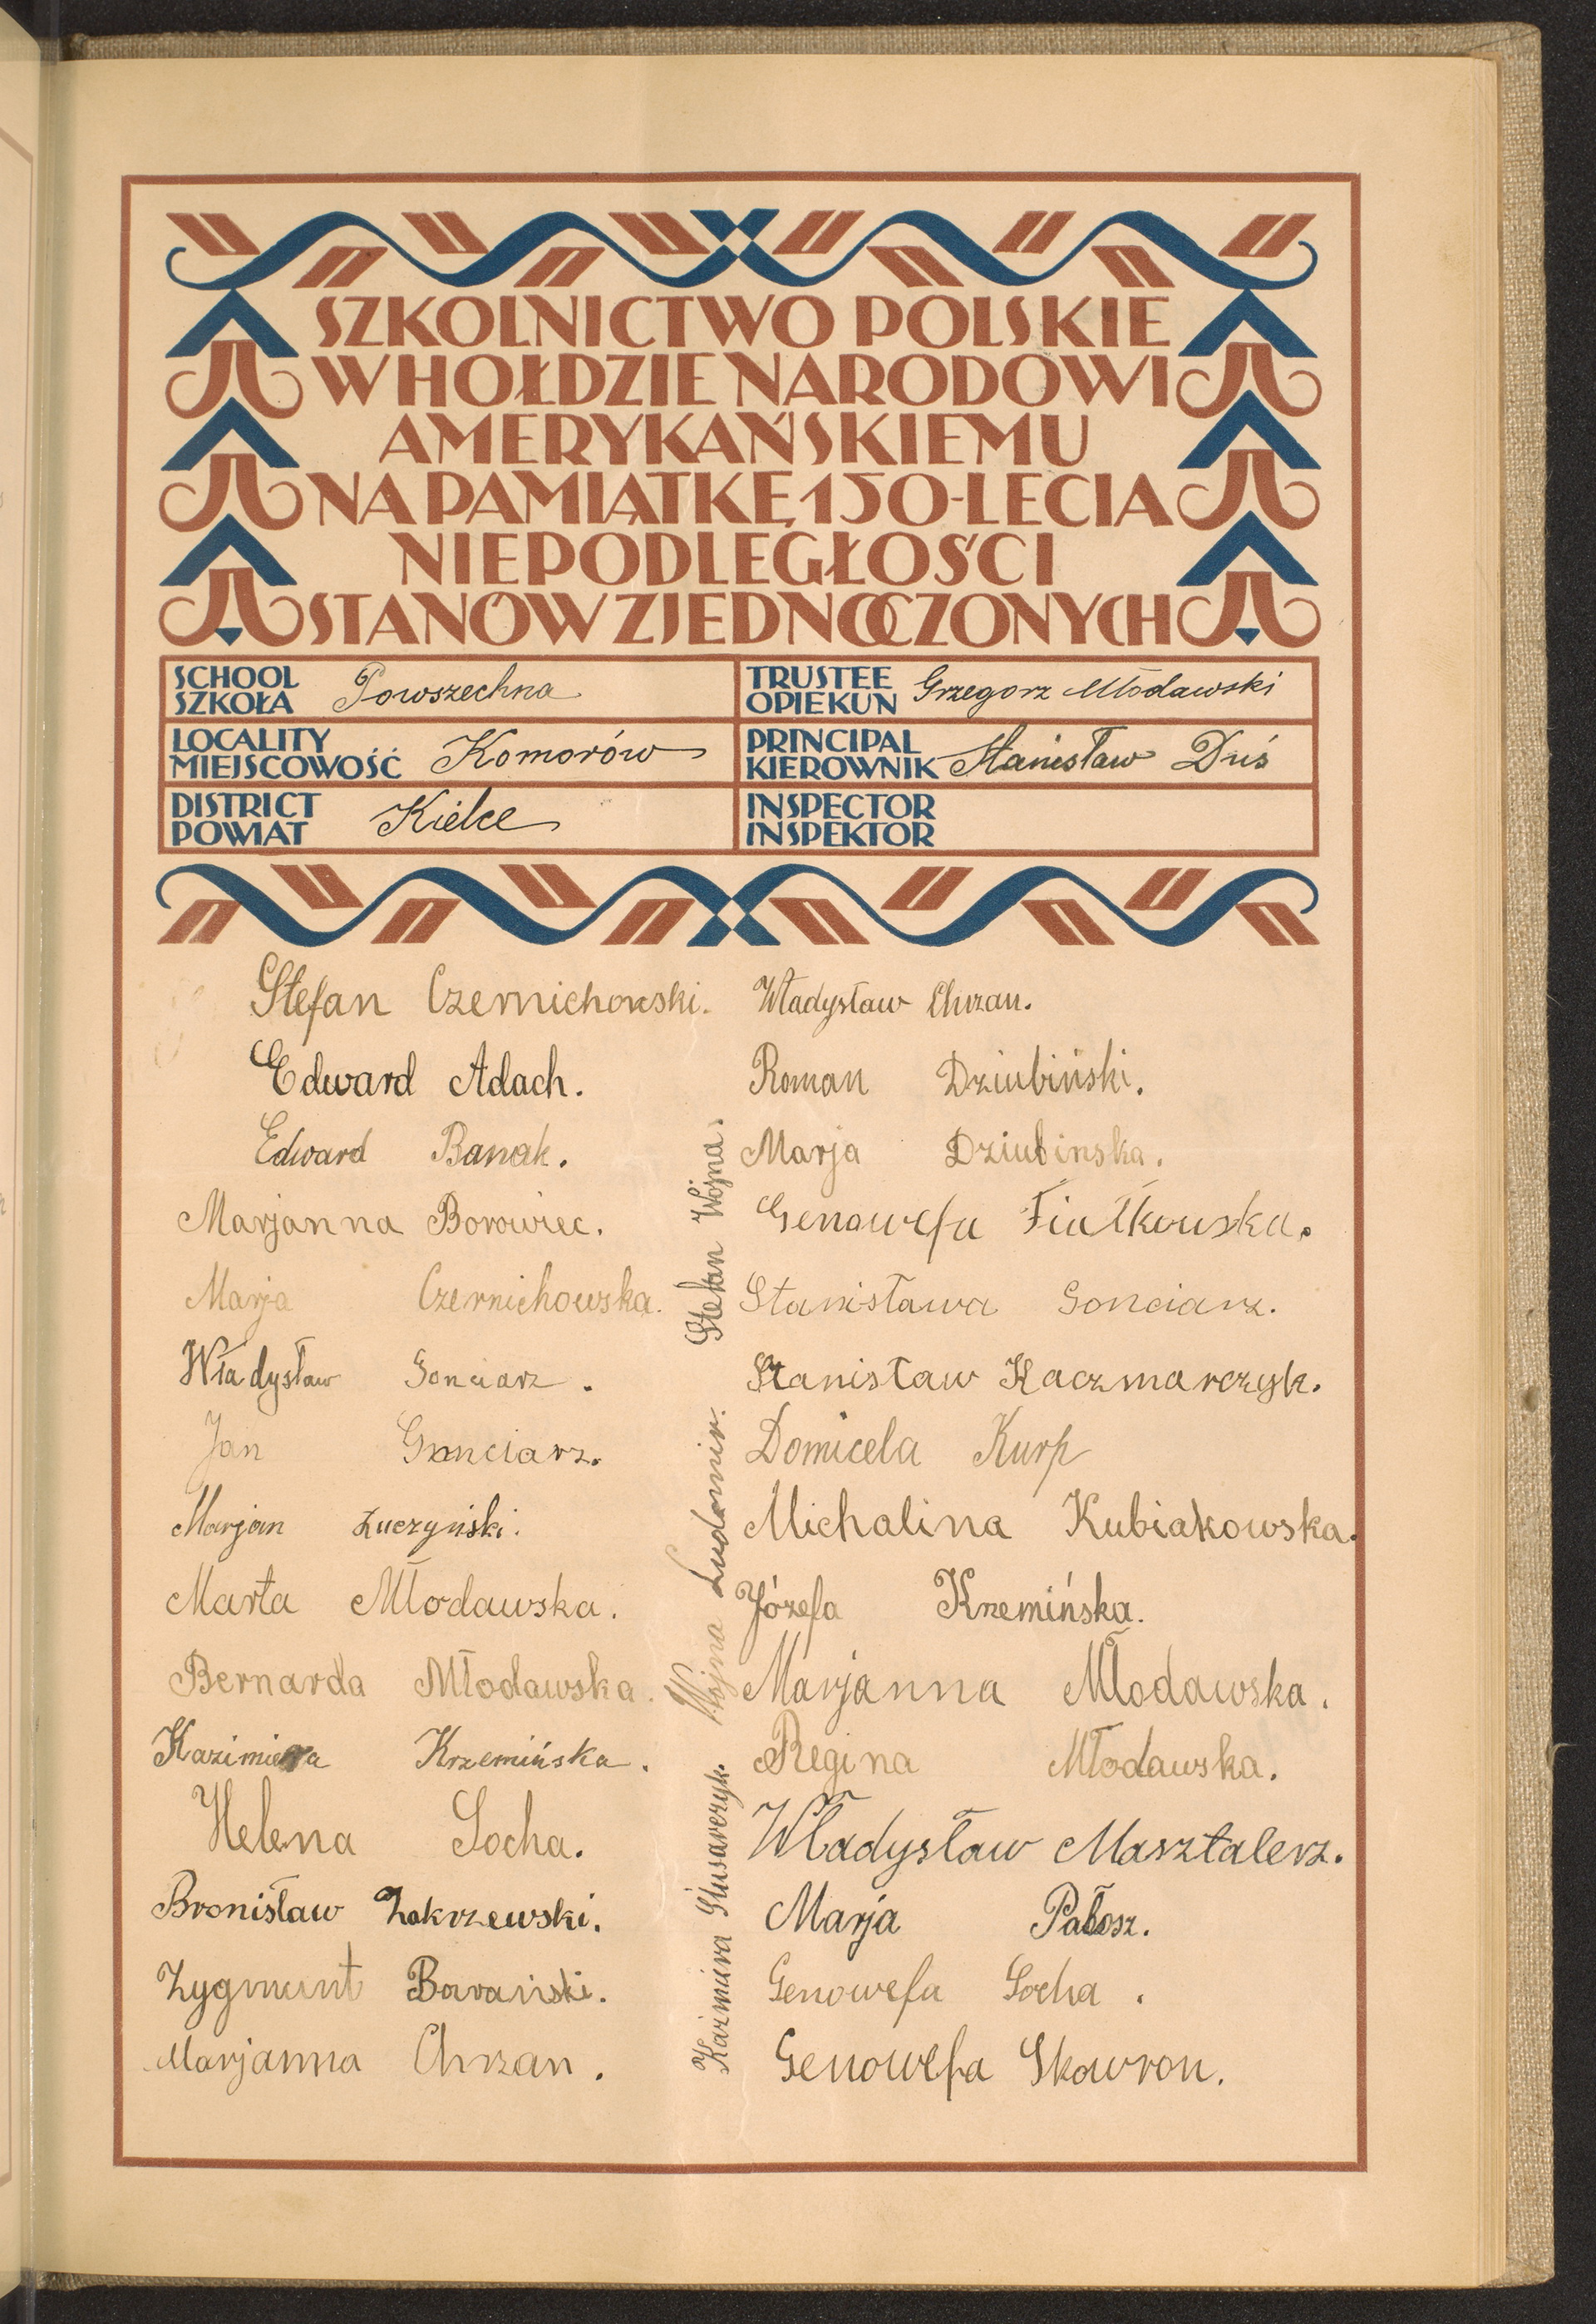 SZKOLNICTWO POLSKIE
W HOŁDZIE NARODOWI
AMERYKAŃSKIEMU
NA PAMIĄTKĘ 150-LECIA
NIEPODLEGŁOŚCI
STANÓW ZJEDNOCZONYCH
SCHOOL
SZKOŁA Powszechna
TRUSTEE
OPIEKUN Grzegorz Młodawski
LOCALITY
MIEJSCOWOŚĆ Komorów
PRINCIPAL
KIEROWNIK Stanisław Duś
DISTRICT
POWIAT Kielce
INSPECTOR
INSPEKTOR
Stefan Czernichowski.
Edward Adach.
Edward Banak.
Marjanna Borowiec.
Marja Czernichowska.
Władysław Gonciarz.
Jan Gonciarz.
Marjan Łuczyński.
Marta Młodawska.
Bernarda Młodawska.
Kazimiera Krzemińska.
Helena Socha.
Bronisław Zakrzewski.
Zygmunt Barański.
Marjanna Chrzan.
Kazimiera Ślusarczyk.
Wojna Ludomir.
Stefan Wojna.
Władysław Chrzan.
Roman Dziubiński.
Marja Dziubinska.
Genowefa Fiałkowska.
Stanisława Gonciarz.
Stanisław Kaczmarczyk.
Domicela Kurp
Michalina Kubiakowska.
Józefa Krzemińska.
Marjanna Młodawska.
Regina Młodawska.
Władysław Masztalerz.
Marja Pałosz.
Genowefa Socha.
Genowefa Skowron.